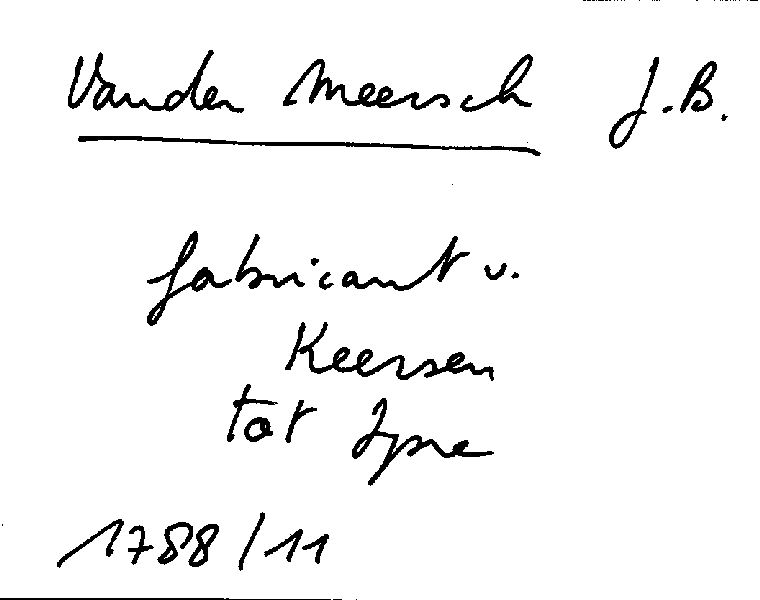 Vander Meersch J.B.
fabricant v.
Keersen
tot Ypre
1788/11